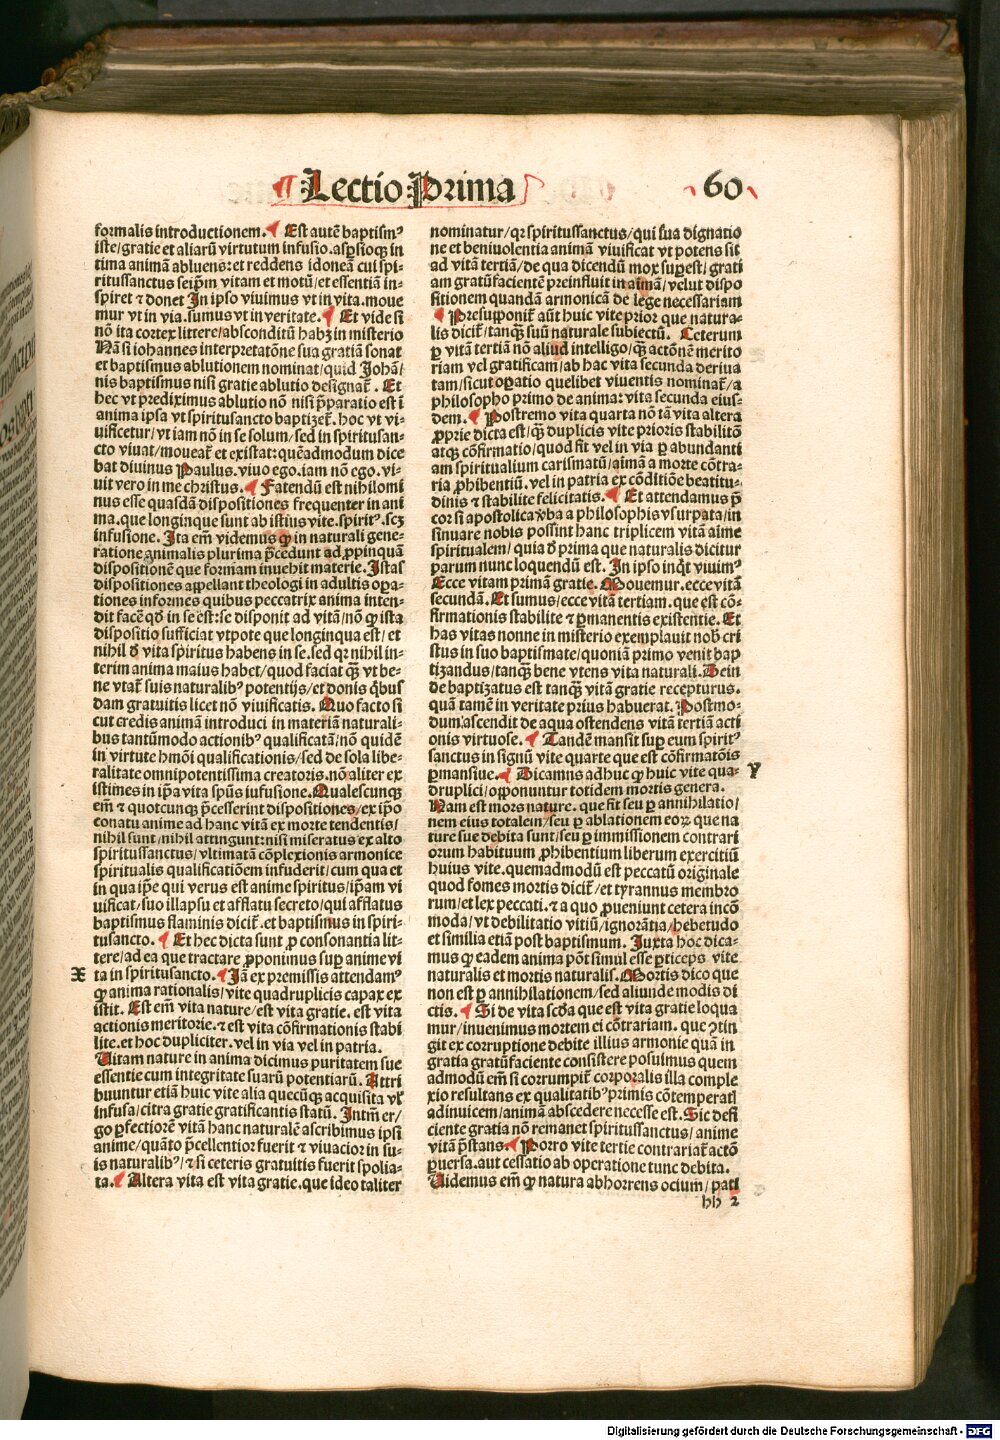 ¶ Lectio Prima 60
formalis introductionem. ¶ Est autē baptismꝰ
iste/gratie et aliarū virtutum infusio. asꝑsioqꝫ in
tima animā abluens: et reddens idoneā cui spi-
ritussanctus seip̄m vitam et motū/et essentiā in-
spiret ⁊ donet In ipso viuimus vt in vita. moue
mur vt in via. sumus vt in veritate. ¶ Et vide si
nō ita cortex littere/absconditū habꝫ in misterio
Nā si iohannes interpretatōne sua gratiā sonat
et baptismus ablutionem nominat/quid Johā/
nis baptismus nisi gratie ablutio designat̄. Et
hec vt prediximus ablutio nō nisi p̄paratio est ī
anima ipsa vt spiritusancto baptizet̄. hoc vt vi-
uificetur/vt iam nō in se solum/sed in spiritusan-
cto viuat/moueat̄ et existat: quēadmodum dice
bat diuinus Paulus. viuo ego. iam nō ego. vi-
uit vero in me christus. ¶ Fatendū est nihilomi
nus esse quasdā dispositiones frequenter in ani
ma. que longinque sunt ab istius vite. spiritꝰ. scꝫ
infusione. Ita em̄ videmus ꝙ in naturali gene-
ratione animalis plurima p̄cedunt ad ꝓpinquā
dispositionē que formam inuehit materie. Istas
dispositiones appellant theologi in adultis oꝑa-
tiones informes quibus peccatrix anima inten-
dit facē qd̄ in se est: se disponit ad vitā/nō ꝙ ista
dispositio sufficiat vtpote que longinqua est/ et
nihil ď vita spiritus habens in se. sed qꝛ nihil in-
terim anima maius habet/quod faciat qꝫ̄ vt be-
ne vtat̄ suis naturalibꝰ potentijs/et donis q̄bus
dam gratuitis licet nō viuificatis. Quo facto si
cut credis animā introduci in materiā naturali-
bus tantūmodo actionibꝰ qualificatā/nō quidē
in virtute hmōi qualificationis/sed de sola libe-
ralitate omnipotentissima creatoris. nō aliter ex
istimes in ip̄a vita spūs iufusione. Qualescunqꝫ
em̄ ⁊ quotcunqꝫ p̄cesserint dispositiones/ex ip̄o
conatu anime ad hanc vitā ex morte tendentis/
nihil sunt/nihil attingunt: nisi miseratus ex alto
spiritussanctus/vltimatā cōplexionis armonice
spiritualis qualificatiōem infuderit/cum qua et
in qua ip̄e qui verus est anime spiritus/ip̄am vi
uificat/suo illapsu et afflatu secreto/qui afflatus
baptismus flaminis dicit̄. et baptismus in spiri-
tusancto. ¶ Et hec dicta sunt ꝓ consonantia lit-
tere/ad ea que tractare ꝓponimus suꝑ anime vi
X ta in spiritusancto. ¶ Jā ex premissis attendamꝰ
ꝙ anima rationalis/vite quadruplicis capax ex
istit. Est em̄ vita nature/est vita gratie. est vita
actionis meritorie. ⁊ est vita cōfirmationis stabi
lite. et hoc dupliciter. vel in via vel in patria.
Uitam nature in anima dicimus puritatem sue
essentie cum integritate suarū potentiarū. Attri
buuntur etiā huic vite alia quecūqꝫ acquisita vl̄
infusa/citra gratie gratificantis statū. Intm̄ er/
go ꝑfectiorē vitā hanc naturalē ascribimus ipsi
anime/quāto p̄cellentior fuerit ⁊ viuacior in su-
is naturalibꝰ/⁊ si ceteris gratuitis fuerit spolia-
ta. ¶ Altera vita est vita gratie. que ideo taliter
nominatur/qꝛ spiritussanctus/qui sua dignatio
ne et beniuolentia animā viuificat vt potens sit
ad vitā tertiā/de qua dicendū mox suꝑest/grati
am gratūfacientē preinfluit in aīmā/velut dispo
sitionem quandā armonicā de lege necessariam
¶ Presupponit̄ aūt huic vite prior que natura-
lis dicit̄/tanqꝫ̄ suū naturale subiectū. Ceterum
ꝑ vitā tertiā nō aliud intelligo/qꝫ̄ actōnē merito
riam vel gratificam/ab hac vita secunda deriua
tam/sicut oꝑatio quelibet viuentis nominat̄/a
philosopho primo de anima: vita secunda eius-
dem. ¶ Postremo vita quarta nō tā vita altera
ꝓprie dicta est/qꝫ̄ duplicis vite prioris stabilitō
atqꝫ cōfirmatio/quod fit vel in via ꝑ abundanti
am spiritualium carismatū/aīmā a morte cōtra-
ria ꝓhibentiū. vel in patria ex cōditiōe beatitu-
dinis ⁊ stabilite felicitatis. ¶ Et attendamus p̄
cor si apostolica v̓ba a philosophis vsurpata/in
sinuare nobis possint hanc triplicem vitā aīme
spiritualem/quia ď prima que naturalis dicitur
parum nunc loquendū est. In ipso inq̄t viuimꝰ
Ecce vitam primā gratie. Mouemur. ecce vitā
secundā. Et sumus/ecce vitā tertiam. que est cō-
firmationis stabilite ⁊ ꝑmanentis existentie. Et
has vitas nonne in misterio exemplauit nob̄ cri
stus in suo baptismate/quoniā primo venit bap
tizandus/tanqꝫ̄ bene vtens vita naturali. Dein
de baptizatus est tanqꝫ̄ vitā gratie recepturus.
quā tamē in veritate prius habuerat. Postmo-
dum ascendit de aqua ostendens vitā tertiā acti
onis virtuose. ¶ Tandē mansit suꝑ eum spiritꝰ
sanctus in signū vite quarte que est cōfirmatōis
ꝑmansiue. ¶ Dicamus adhuc ꝙ huic vite qua- Y
druplici/opponuntur totidem mortis genera.
Nam est mors nature. que fit seu ꝑ annihilatio/
nem eius totalem/seu ꝑ ablationem eoꝝ que na
ture sue debita sunt/seu ꝑ immissionem contrari
orum habituum ꝓhibentium liberum exercitiū
huius vite. quemadmodū est peccatū originale
quod fomes mortis dicit̄/et tyrannus membro
rum/et lex peccati. ⁊ a quo ꝓueniunt cetera incō
moda/vt debilitatio vitiū/ignorātia/hebetudo
et similia etiā post baptismum. Juxta hoc dica-
mus ꝙ eadem anima pōt simul esse ꝑticeps vite
naturalis et mortis naturalis. Mortis dico que
non est ꝑ annihilationem/sed aliunde modis di
ctis. ¶ Si de vita scd̄a que est vita gratie loqua
mur/inuenimus mortem ei cōtrariam. que ꝯtin
git ex corruptione debite illius armonie quā in
gratia gratūfaciente consistere posuimus quem
admodū em̄ si corrumpit̄ corporalis illa comple
xio resultans ex qualitatibꝰ primis cōtemperatī
adinuicem/animā abscedere necesse est. Sic defi
ciente gratia nō remanet spiritussanctus/anime
vitā p̄stans. ¶ Porro vite tertie contrariat̄ actō
ꝑuersa. aut cessatio ab operatione tunc debita.
Uidemus em̄ ꝙ natura abhorrens ocium/pati
hh 2
Digitalisierung gefördert durch die Deutsche Forschungsgemeinschaft - DFG